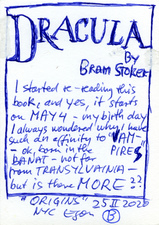 DRACULA
by
BRAM STOKER
I started re-reading this
book, and yes, it starts
on MAY 4 - my birthday
I always wondered why I have
such an affinity to VAM-
- ok, born in the PIRES
BANAT - not far
from TRANSYLVAINIA -
but is there MORE??
"ORIGINS" 25 II 2020
NYC
B